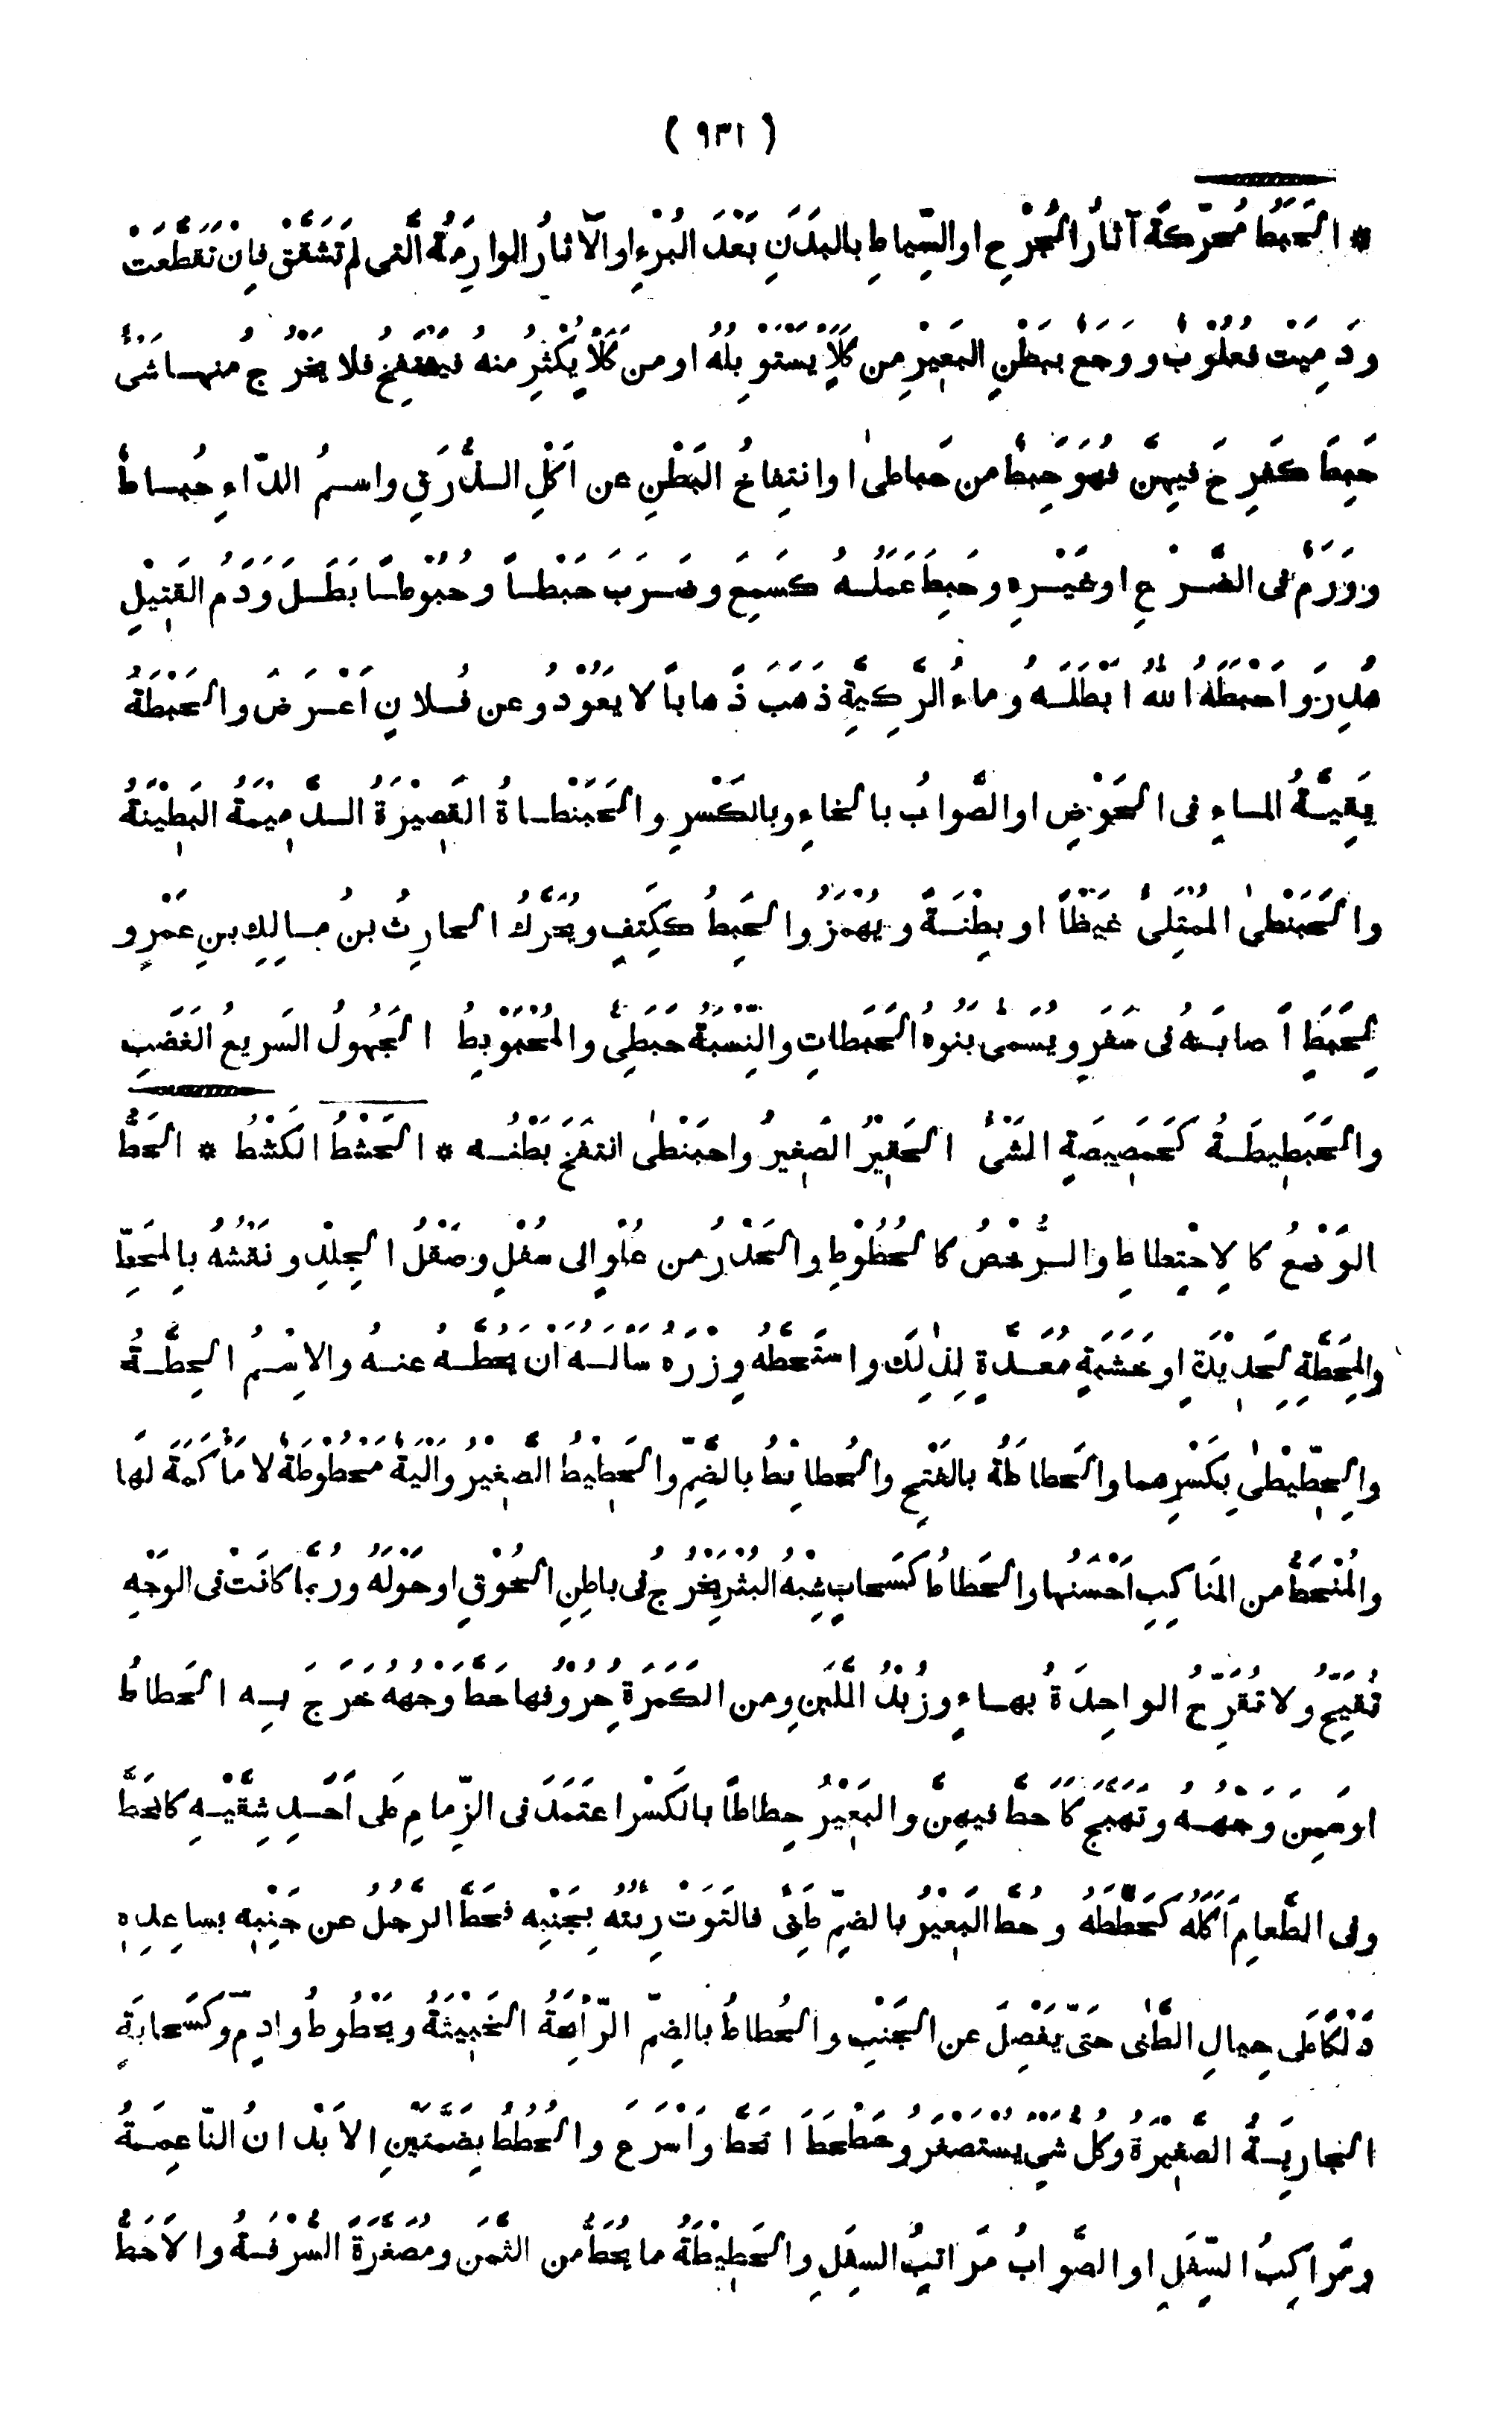 ( ٩٣١ )
* الحَبَطُ مُحَرّكَةً آثارُ الجُرْحِ او السِّياطِ بالبَدَنِ بَعْدَ البُرْءِ او الآثارُ الوارِمَةُ الّتى لم تَشَقَّقْ فاِنْ تَقَطَّعَتْ
ودَمِيَتْ فعُلُوْبٌ ووَجَعٌ ببَطْنِ البَعِيْرِ من كَلَأٍ يَسْتَوْبِلُهُ او من كَلَأٍ يُكْثِرُ منهُ فيَنْتَفِخُ فلا يَخْرُجُ منهـا شَىْءٌ
حَبِطَ كفَرِحَ فيهِنَّ فهُوَ حَبِطٌ من حَباطىٰ او انتِفاخُ البَطْنِ عن اَكْلِ الذُّرَقِ واسمُ الدّاءِ حُبـاطٌ
ووَرَمٌ فى الضَّرْعِ او غَيْرِهِ وحَبِطَ عَمَلُـهُ كسَمِعَ وضَرَبَ حَبْطـاً وحُبُوْطـاً بَطَـلَ ودَمُ القَتِيْلِ
هُدِرَ واَحْبَطَهُ اللّٰهُ اَبْطَلَـهُ وماءُ الرَّكِيَّةِ ذهَبَ ذَهاباً لا يَعُوْدُ وعن فُـلانٍ اَعْـرَضَ والحَبْطَةُ
بَقِيَّـةُ المـاءِ فى الحَوْضِ او الصَّوابُ بالخاءِ وبالكَسْرِ والحَبَنْطـاةُ القَصِيْرَةُ الـدَّمِيْمَةُ البَطِيْنَةُ
والحَبَنْطىٰ المُمْتَلِئُ غَيْظاً او بِطْنَـةً ويُهْمَزُ والحَبِطُ ككَتِفٍ ويُحَرَّكُ الحارِثُ بنُ مـالِكِ بنِ عَمْرٍو
لِحَبَطٍ اَصابَـهُ فى سَفَرٍ ويُسَمّىٰ بَنُوهُ الحَبَطاتِ والنِّسْبَةُ حَبَطِىٌّ والمُحْبَوْبِطُ الجَهُولُ السَرِيعُ الغَضَبِ
والحَبَطِيطَـةُ كحَمَصِيصَةٍ الشَىْءُ الحَقِيْرُ الصَغِيرُ واحبَنْطىٰ انتفَخَ بَطْنُـه * الحَشْطُ الكَشْطُ * الحَطُّ
الوَضْعُ كالِاحْتِطاطِ والـرُّخْصُ كالحُطُوْطِ والحَدْرُ من عُلْوٍ الى سُفْلٍ وصَقْلُ الجِلْدِ ونَقْشُهُ بِالمِحَطِّ
والمِحَطَّةِ لِحَدِيْدَةٍ او خَشَبَةٍ مُعَـدَّةٍ لِذٰلِكَ واستَحَطَّهُ وِزْرَهُ سَاَلَـه اَنْ يَحُطَّـهُ عنـهُ والِاسْمُ الحِطَّـةُ
والحِطِّيْطىٰ بكَسْرِهما والحَطاطَةُ بالفَتْحِ والحُطائِطُ بالضَمِّ والحَطِيْطُ الصَّغِيْرُ واَلْيَةٌ مَحْطُوْطَةٌ لا مَأْكَمَةَ لَها
والمُنْحَطُّ من المَناكِبِ اَحْسَنُها والحَطاطُ كسَحابٍ شِبْهُ البُثْرِ يَخْرُجُ فى باطِنِ الحُوْقِ او حَوْلَهُ ورُبَّما كانَتْ فى الوَجْهِ
تُقَيِّحُ ولا تُقَرِّحُ الواحِدَةُ بهـاءٍ وزُبْدُ اللَّبَنِ ومن الكَمَرَةِ حُرُوْفُها حطَّ وَجْهُهُ خَرَجَ بـه الحَطاطُ
او سَمِنَ وَجْهُـهُ وتَهَبَّجَ كاَحَطَّ فيهِنَّ والبَعِيْرُ حِطاطاً بالكَسْرِ اعتَمَدَ فى الزِّمامِ عَلى اَحَـدِ شِقَّيْـهِ كانحَطَّ
وفى الطَّعامِ اَكَلَهُ كحَطَّطَهُ وحُطَّ البَعِيْرُ بالضمِّ طَنِىَ فالتَوَتْ رِئَتُه بِجَنْبِه فحَطَّ الرجُلُ عن جَنْبِه بساعِدِهِ
دَلْكاً عَلى حِيالِ الطَّنىٰ حتّى يَنْفَصِلَ عن الجَنْبِ والحُطاطُ بالضِمِّ الرّائِحَةُ الخَبِيثَةُ ويَحْطُوطُ وادٍ م وكسَحابَةٍ
الجارِيَـةُ الصَّغِيْرَةُ وكُلُّ شىءٍ يُسْتَصْغَرُ وحَطْحَطَ انحَطَّ واَسْرَعَ والحُطُطُ بِضَمَّتَيْنِ الاَبْدانُ النّاعِمَـةُ
ومَراكِبُ السِّفَلِ او الصَّوابُ مَراتِبُ السِفَلِ والحَطِيْطَةُ ما يُحَطُّ من الثَّمَنِ ومُصَغَّرَةً السُّرْفَـةُ والاَحَطُّ